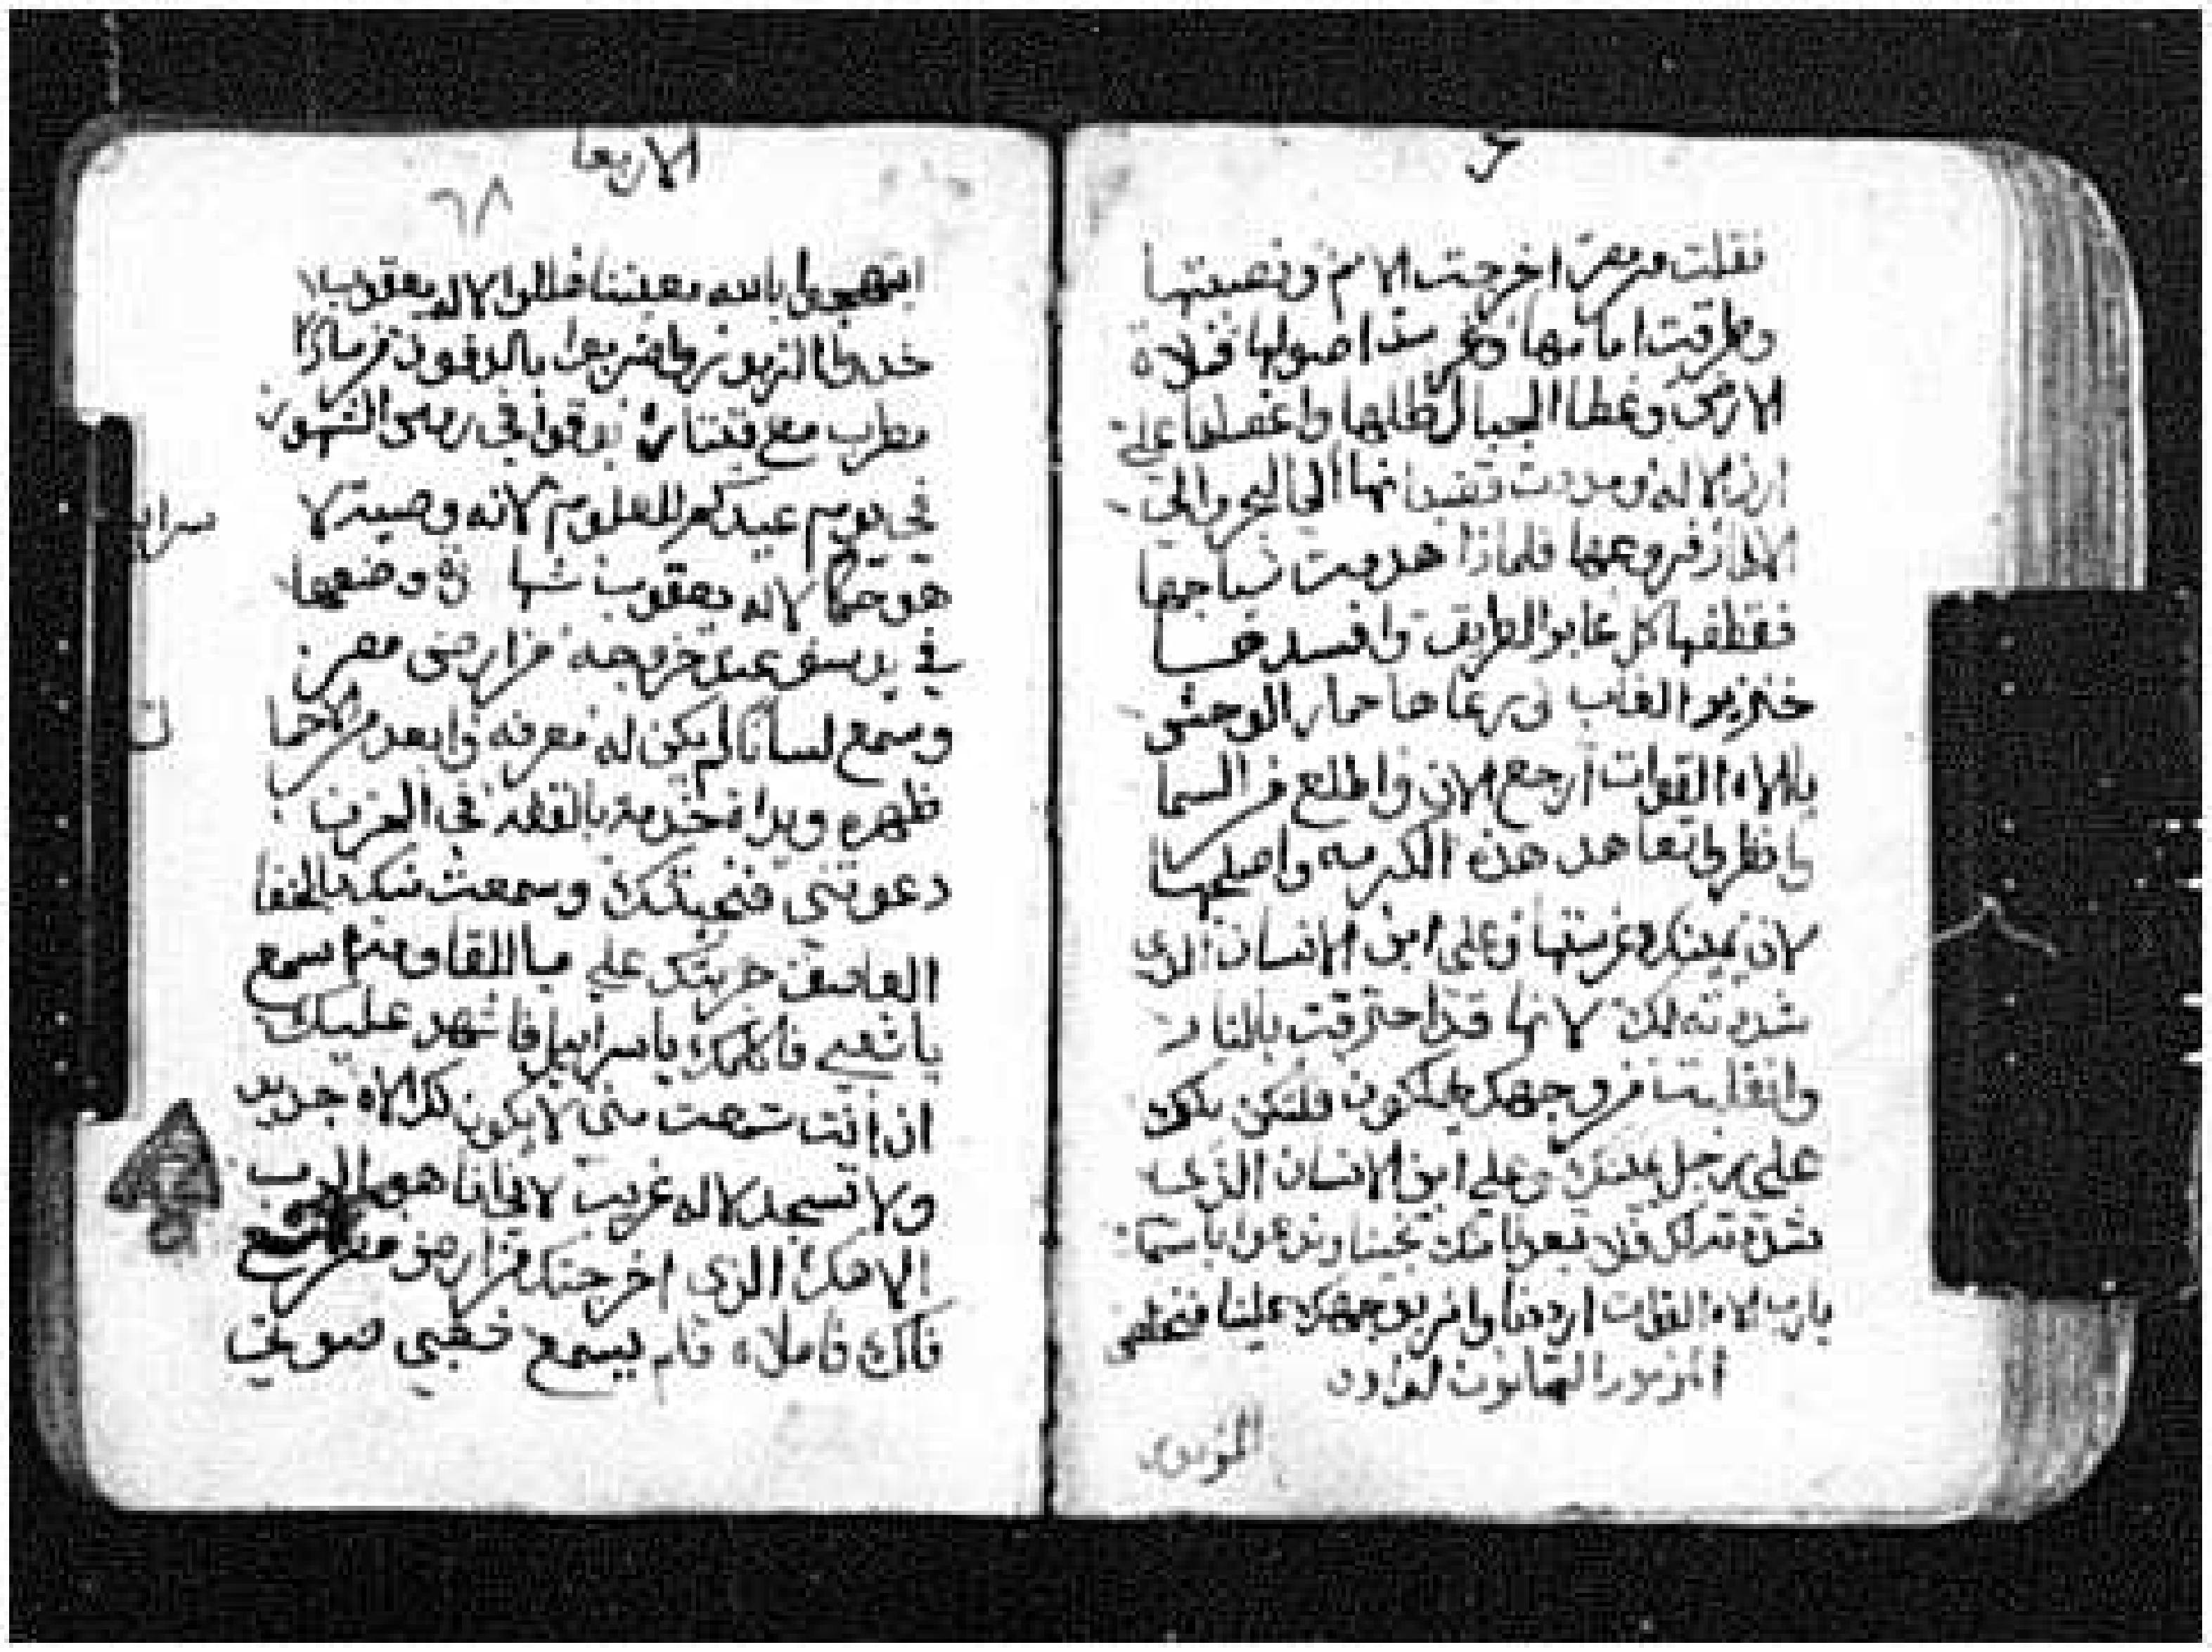 نقلت من مصر اخرجت الامم ونصبتها
وطرقت امامها وغرست اصولها فملاة
الارض وغطا الجبال ظلها واغصانها علي
ارز الاله ومددت قضبانها الى البحر والى
الانهار فروعها فلماذا هدمت سياجها
فقطفها كل عابر الطريق وافسدها
خنزير الغاب ورعاها حمار الوحش
يالاه القوات ارجع الان واطلع من السما
وانظر وتعاهد هذه الكرمه واصلحها
لان يمينك غرستها وعلى ابن الانسان الذي
شددته لك لانها قد احترقت بالنار
وانقلبت من وجهك فلتكن يدك
على رجل يمينك وعلى ابن الانسان الذي
شددته لك فلا نبعد منك تحيينا وندعوا باسمك
يارب الاه القوات ارددنا وانر بوجهك علينا فنخلص
المزمور الثمانون لداود
المزمور
الاربعا
٦٨
ابتهجوا بالله معيننا هللوا لاله يعقوب
خذوا المزمور واضربوا بالدفوف مزمارا
مطرب مع قيتار بوقوا في روس الشهور
في يوم عيدكم المعلوم لانه وصية لا
هو حكما لاله يعقوب شها وضعها
في يوسف عند خروجه من ارض مصر
وسمع لسانا لم يكن له معرفه وابعد من
ظهره ويداه خدمة بالقفه في الحزن
دعوتني فنجيتك وسمعت منك بالخفا
العاصف جربتك علي ما اللقاومه اسمع
ياشعبي فاكلمك ياسراييل فاشهد عليك
ان انت سمعت مني لا يكون لك الاه جديد
ولا تسجد لاله غريب لاني انا هو الرب
الاهك الذي اخرجتك من ارض مصر
فاك فاملاه فلم يسمع شعبي صوتي